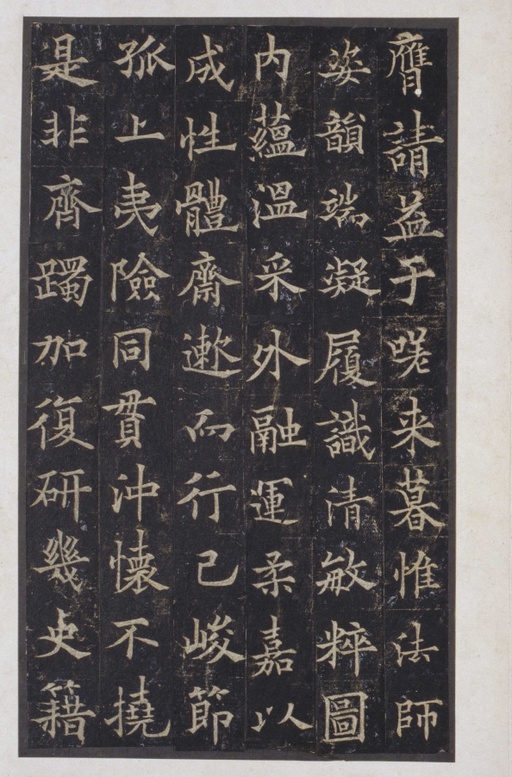 膺請益于唴来暮惟法師
姿韻端凝履識清敏粹圖
内蘊温采外融運柔嘉以
成性體齋遬而行己峻節
孤上夷險同貫沖懷不撓
是非齊躅加復研幾史籍